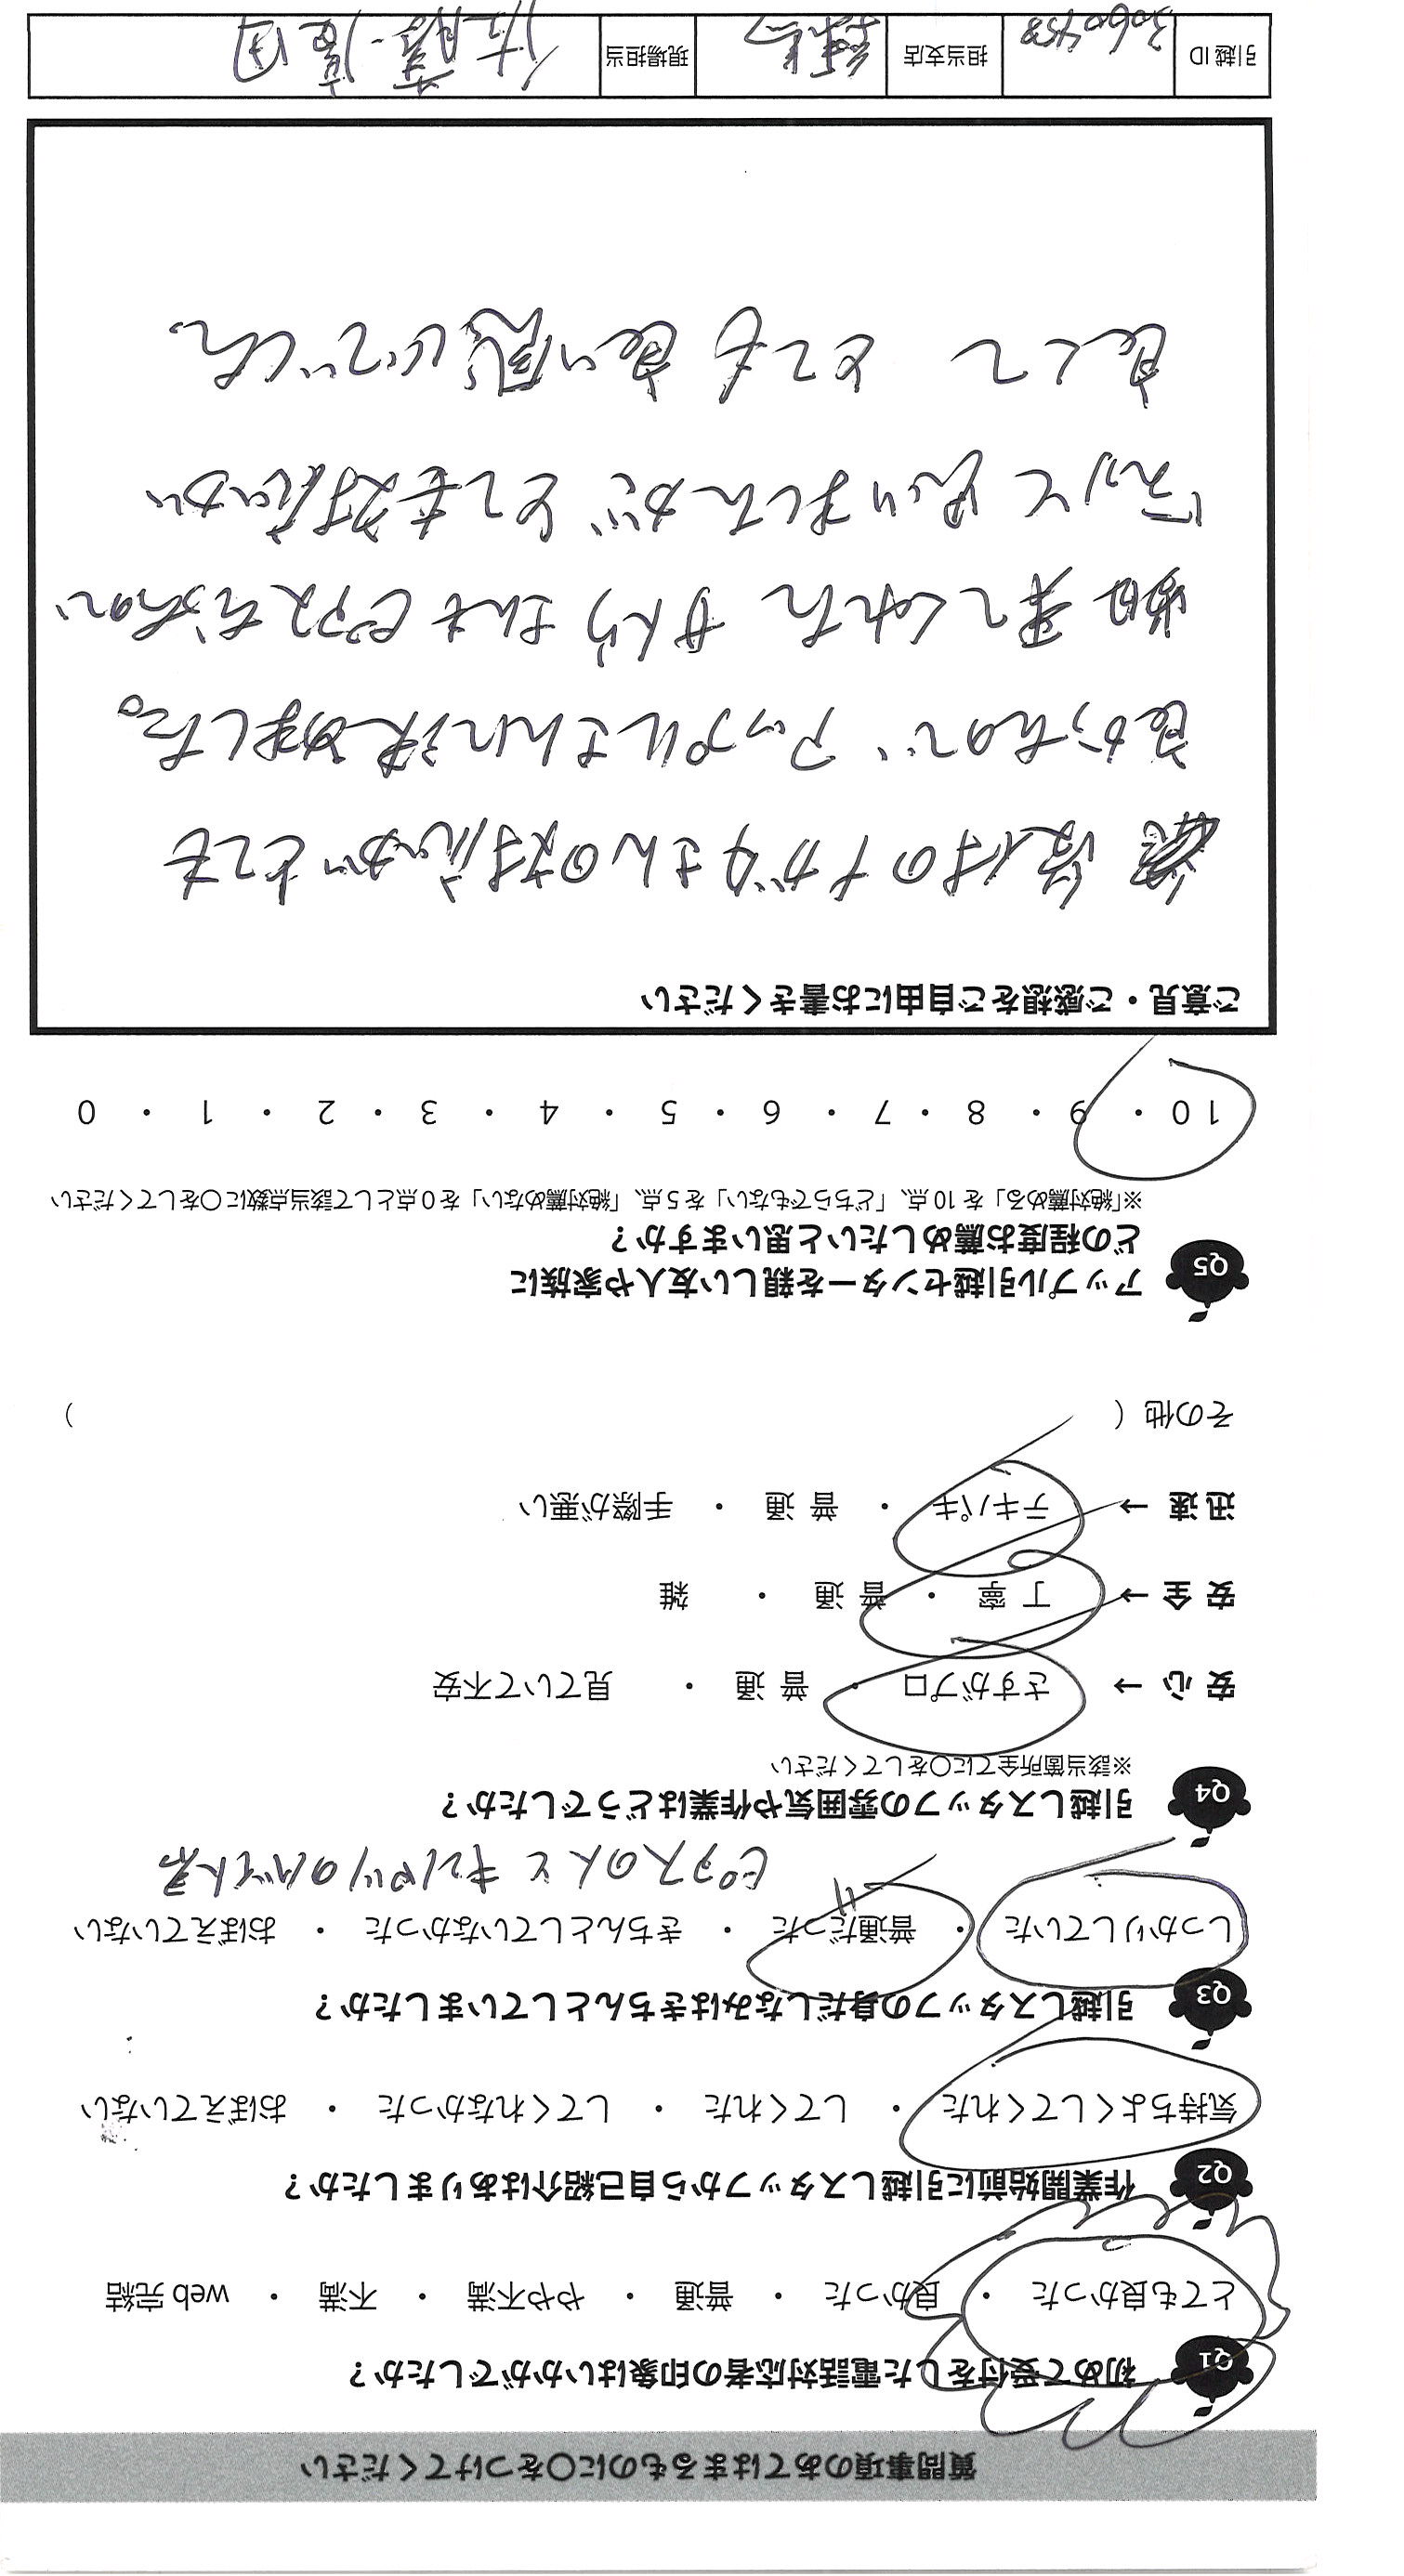 質問事項のあてはまるものに〇をつけてください
Q1 初めて受付をした電話対応者の印象はいかがでしたか？
とても良かった ・ 良かった ・ 普通 ・ やや不満 ・ 不満 ・ web 完結
Q2 作業開始前に引越しスタッフから自己紹介はありましたか？
気持ちよくしてくれた ・ してくれた ・ してくれなかった ・ おぼえていない
Q3 引越しスタッフの身だしなみはきちんとしていましたか？
しっかりしていた ・ 普通だった ・ きちんとしていなかった ・ おぼえていない
ピアスの人と キンパツのバイト系
Q4 引越しスタッフの雰囲気や作業はどうでしたか？
※該当箇所全てに〇をしてください
安 心 → さすがプロ ・ 普 通 ・ 見ていて不安
安 全 → 丁 寧 ・ 普 通 ・ 雑
迅 速 → テキパキ ・ 普 通 ・ 手際が悪い
その他（ ）
Q5 アップル引越センターを親しい友人や家族に
どの程度お薦めしたいと思いますか？
※「絶対薦める」を 10 点、「どちらでもない」を 5 点、「絶対薦めない」を 0 点として該当点数に〇をしてください
10 ・ 9 ・ 8 ・ 7 ・ 6 ・ 5 ・ 4 ・ 3 ・ 2 ・ 1 ・ 0
ご意見・ご感想をご自由にお書きください
受付のナガタさんの対応がとても
良かったので、アップルさんに決めました。
当日 来てくれた さんもピアスだったので
と思いましたが とても対応が
良くて とても良い感じでした。
引越 ID 3060458 担当支店 練馬 現場担当 佐藤・濱田